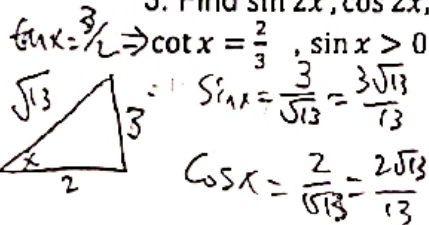 3. Find sin 2x, cos 2x,
tan x = 3/2 ⇒ cot x = 2/3 , sin x > 0
√13 3 x 2
Sin x = 3/√13 = 3√13/13
Cos x = 2/√13 = 2√13/13